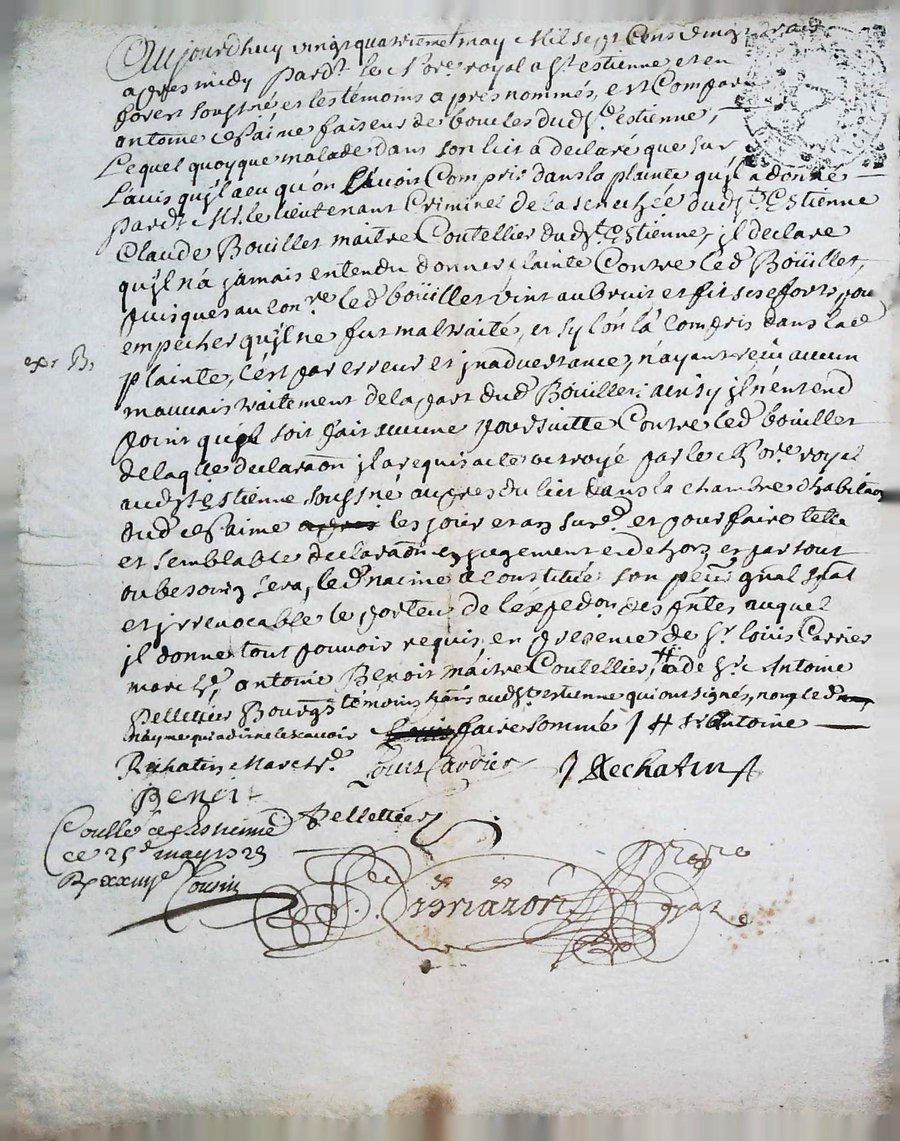 Aujourdhuy vingtquatrieme may Mil sept Cens vingt
apres midy pardt le Nore royal a St estienne et en
forest soussné et les témoins apres nommés, est Compar
antoine faiseur de boucles dudt St estienne,
Lequel quoyque malade dans son lit a declaré que sur
Lauis qu'jl a eu qu'on Lauoit Compris dans la plainte qu'jl a donné
pardt Mr le lieutenant Criminel de la senchée dudt St Estienne
Claude Bouillet maitre Coutellier dudt St Estienne, jl declare
qu'jl n'a jamais entendu donner plainte Contre led Boüillet,
puisques au conre led boüillet vint au bruit et fit ses efforts pou
empecher qu'jl ne fut maltraité, et sy lon la compris dans lad
plainte, c'est par erreur et jnaduertance, n'ayant reçu aucun
exp B,
mauuais traitement de la part dud Bouillet: ainsy jl n'entend
point qu'jl soit fait aucune poursuitte Contre led bouillet
de laqlle declaraon jl a requis acte octroyé par le Nore royal
audt St Estienne soussné aupres du lict dans la chambre d'habitaon
dud apres les jour et an susd et pour faire telle
et semblable declaraon en jugement en dehors et par tout
ou besoing sera, led a constitué son gnal spal
et jrreuocable le porteur de l'expedon des pntes auquel
jl donne tout pouuoir requis, en presence de Sr loüis Carrier
march, antoine Benoit maitre Coutellier, # & de Sr Antoine
Pelletier Bourgs témoins audt St estienne qui ont signés, non led
qui a dit ne le scauoir faire sommé / # Sr Antoine
Rechatin March
Louis Carrier
J Rechatin
Benoit
Pelletier
Conllé a St Estienne
ce 25e may 1723
Cousin